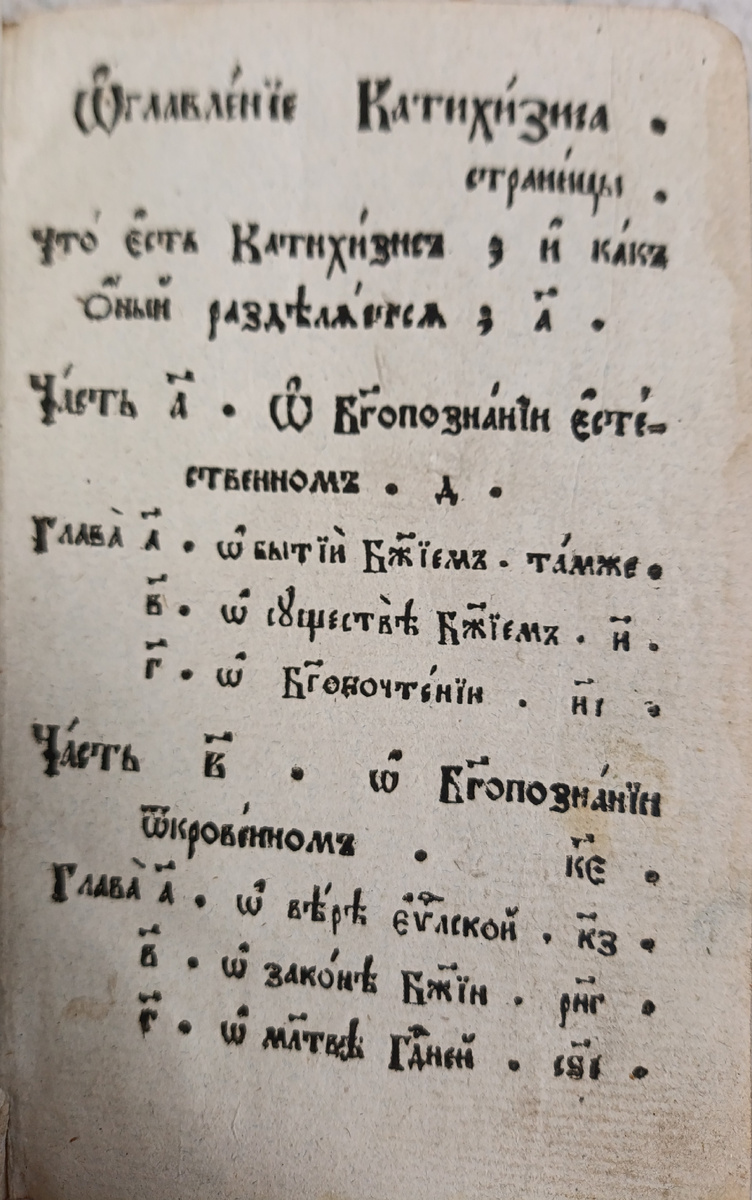 Ѡ҆главле́нїе Катихи́зиса .
страни́цы .
что̀ є҆́сть Катихи́зисъ ; и҆ ка́къ
ѻ҆́ный раздѣлѧ́етсѧ ; а҃ .
Ча́сть а҃ . Ѡ҆ Бг҃опозна́нїи є҆сте́-
ственномъ . д .
Глава̀ а҃ . ѡ҆ бытїѝ Бж҃їемъ . та́мже .
в҃ . ѡ҆ сꙋществѣ̀ Бж҃їемъ . и҃ .
г҃ . ѡ҆ Бг҃опочте́нїи . н҃і .
Ча́сть в҃ . ѡ҆ Бг҃опозна́нїи
ѿкрове́нномъ . к҃є .
Глава̀ а҃ . ѡ҆ вѣ́рѣ є҆ѵⷢ҇лской . к҃з .
в҃ . ѡ҆ зако́нѣ Бж҃їи . рн҃г .
г҃ . ѡ҆ мл҃твѣ Гд҇ней .